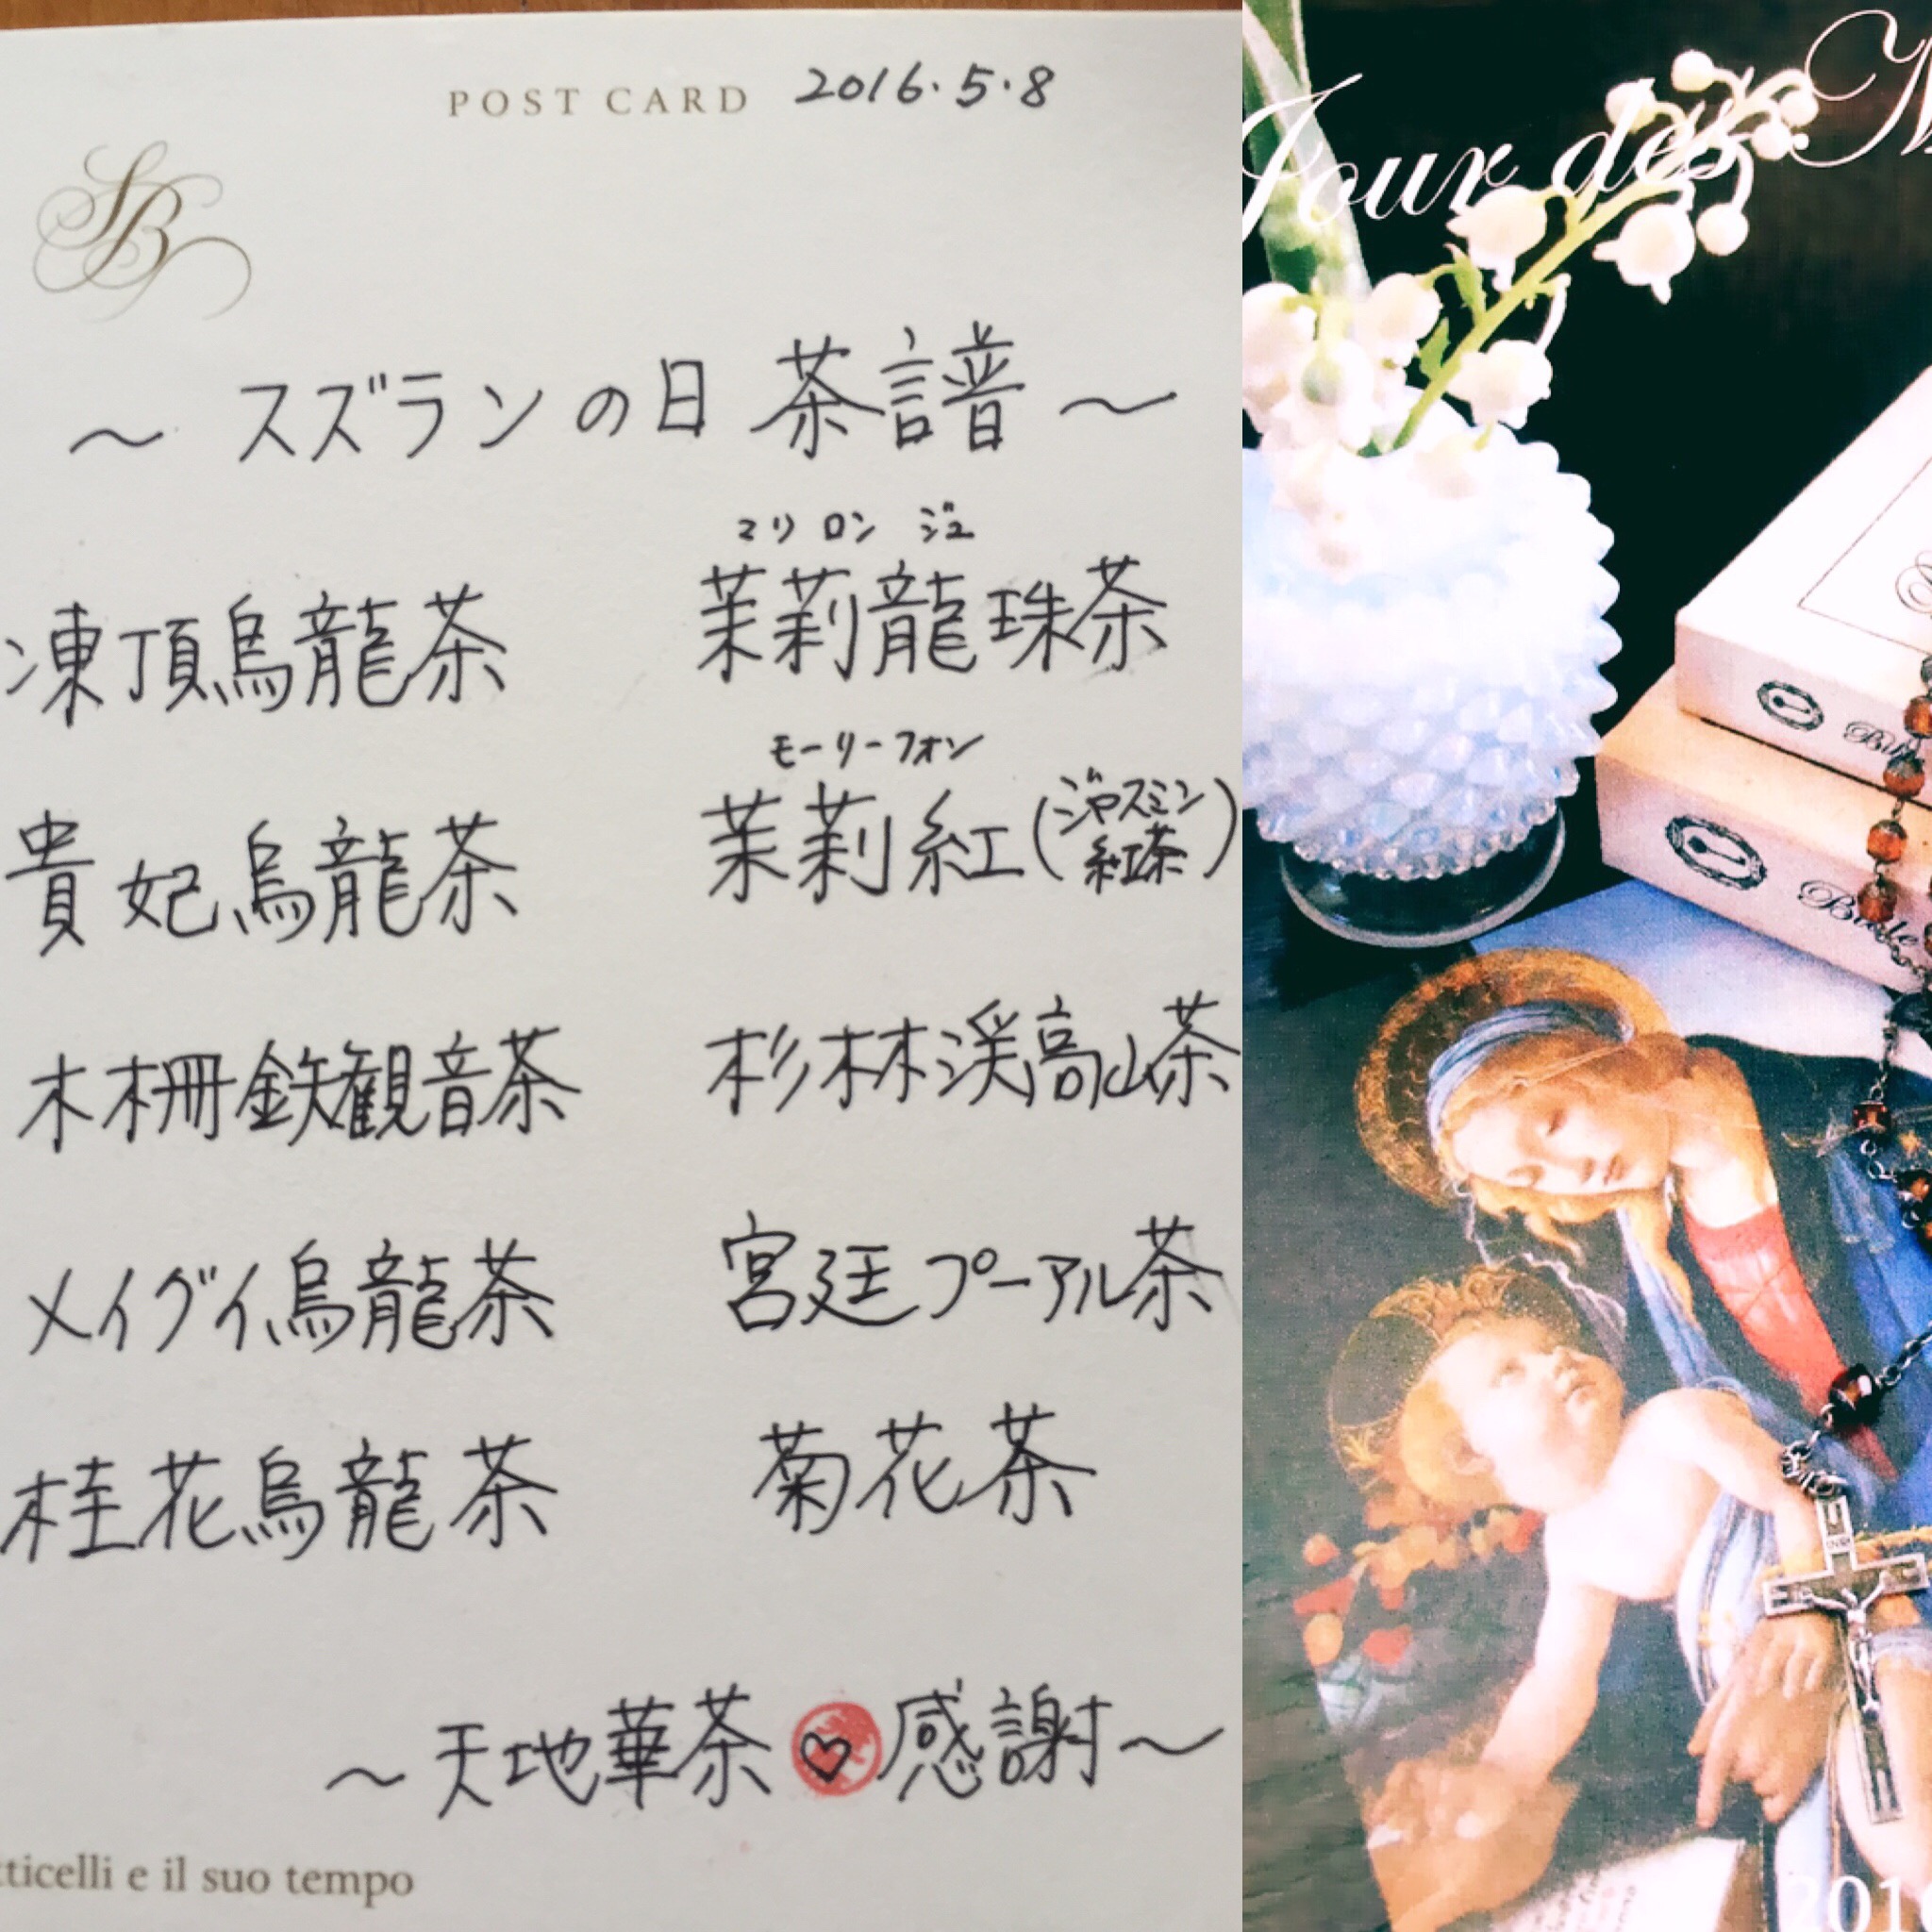 POST CARD 2016.5.8
SB
～スズランの日 茶譜～
凍頂烏龍茶
貴妃烏龍茶
木柵鉄観音茶
メイグイ烏龍茶
桂花烏龍茶
マリ ロン ジュ
茉莉龍珠茶
モーリーフォン
茉莉紅(ジャスミン紅茶)
杉林渓高山茶
宮廷プーアル茶
菊花茶
～天地華茶♡感謝～
tticelli e il suo tempo
Jour des M
201